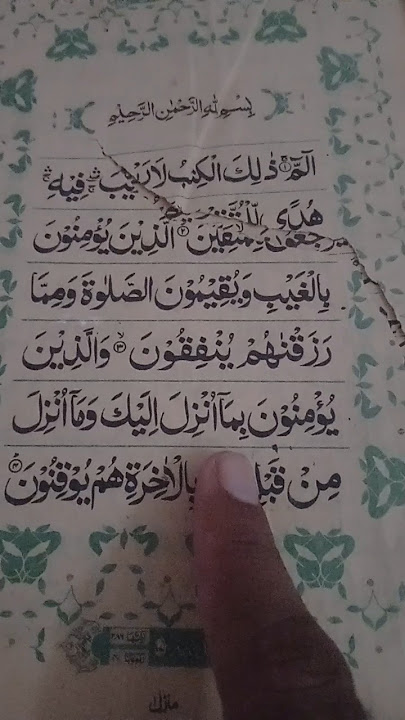 بِسْمِ اللهِ الرَّحْمٰنِ الرَّحِيْمِ
الٓمّٓ ۚ﴿۱﴾ ذٰلِكَ الْكِتٰبُ لَا رَيْبَ ۛۚ فِيْهِ ۛۚ
هُدًى لِّلْمُتَّقِيْنَ ﴿۲﴾ الَّذِيْنَ يُؤْمِنُوْنَ
بِالْغَيْبِ وَيُقِيْمُوْنَ الصَّلٰوةَ وَمِمَّا
رَزَقْنٰهُمْ يُنْفِقُوْنَ ﴿۳﴾ وَالَّذِيْنَ
يُؤْمِنُوْنَ بِمَآ اُنْزِلَ اِلَيْكَ وَمَآ اُنْزِلَ
مِنْ بِالْاٰخِرَةِ هُمْ يُوْقِنُوْنَ ﴿۴﴾